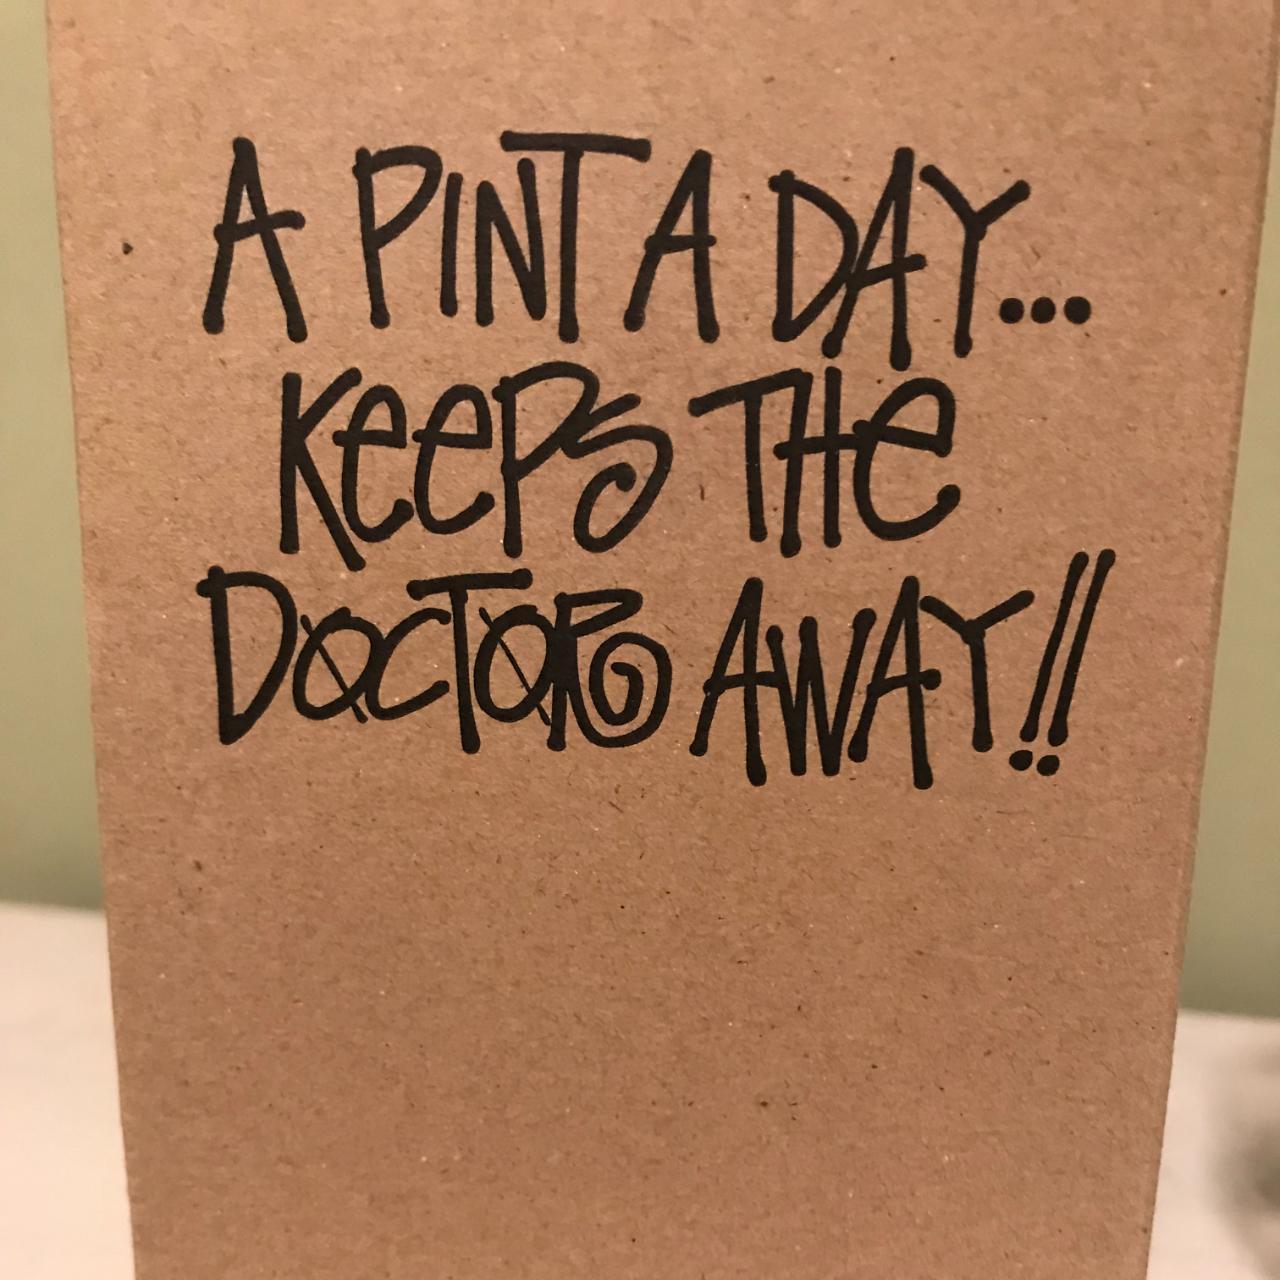 A PINT A DAY...
KeePS THe
DOCTOR AWAY!!